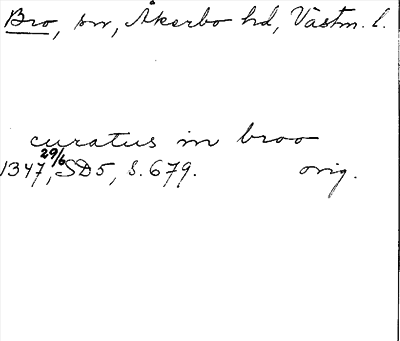 Bro, sn, Åkerbo hd, Västm. l.
curatus in broo
1347 29/6, SD5, s. 679. orig.